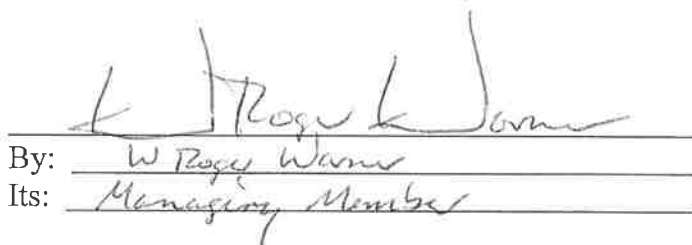 W Roger Warner
By: W Roger Warner
Its: Managing Member